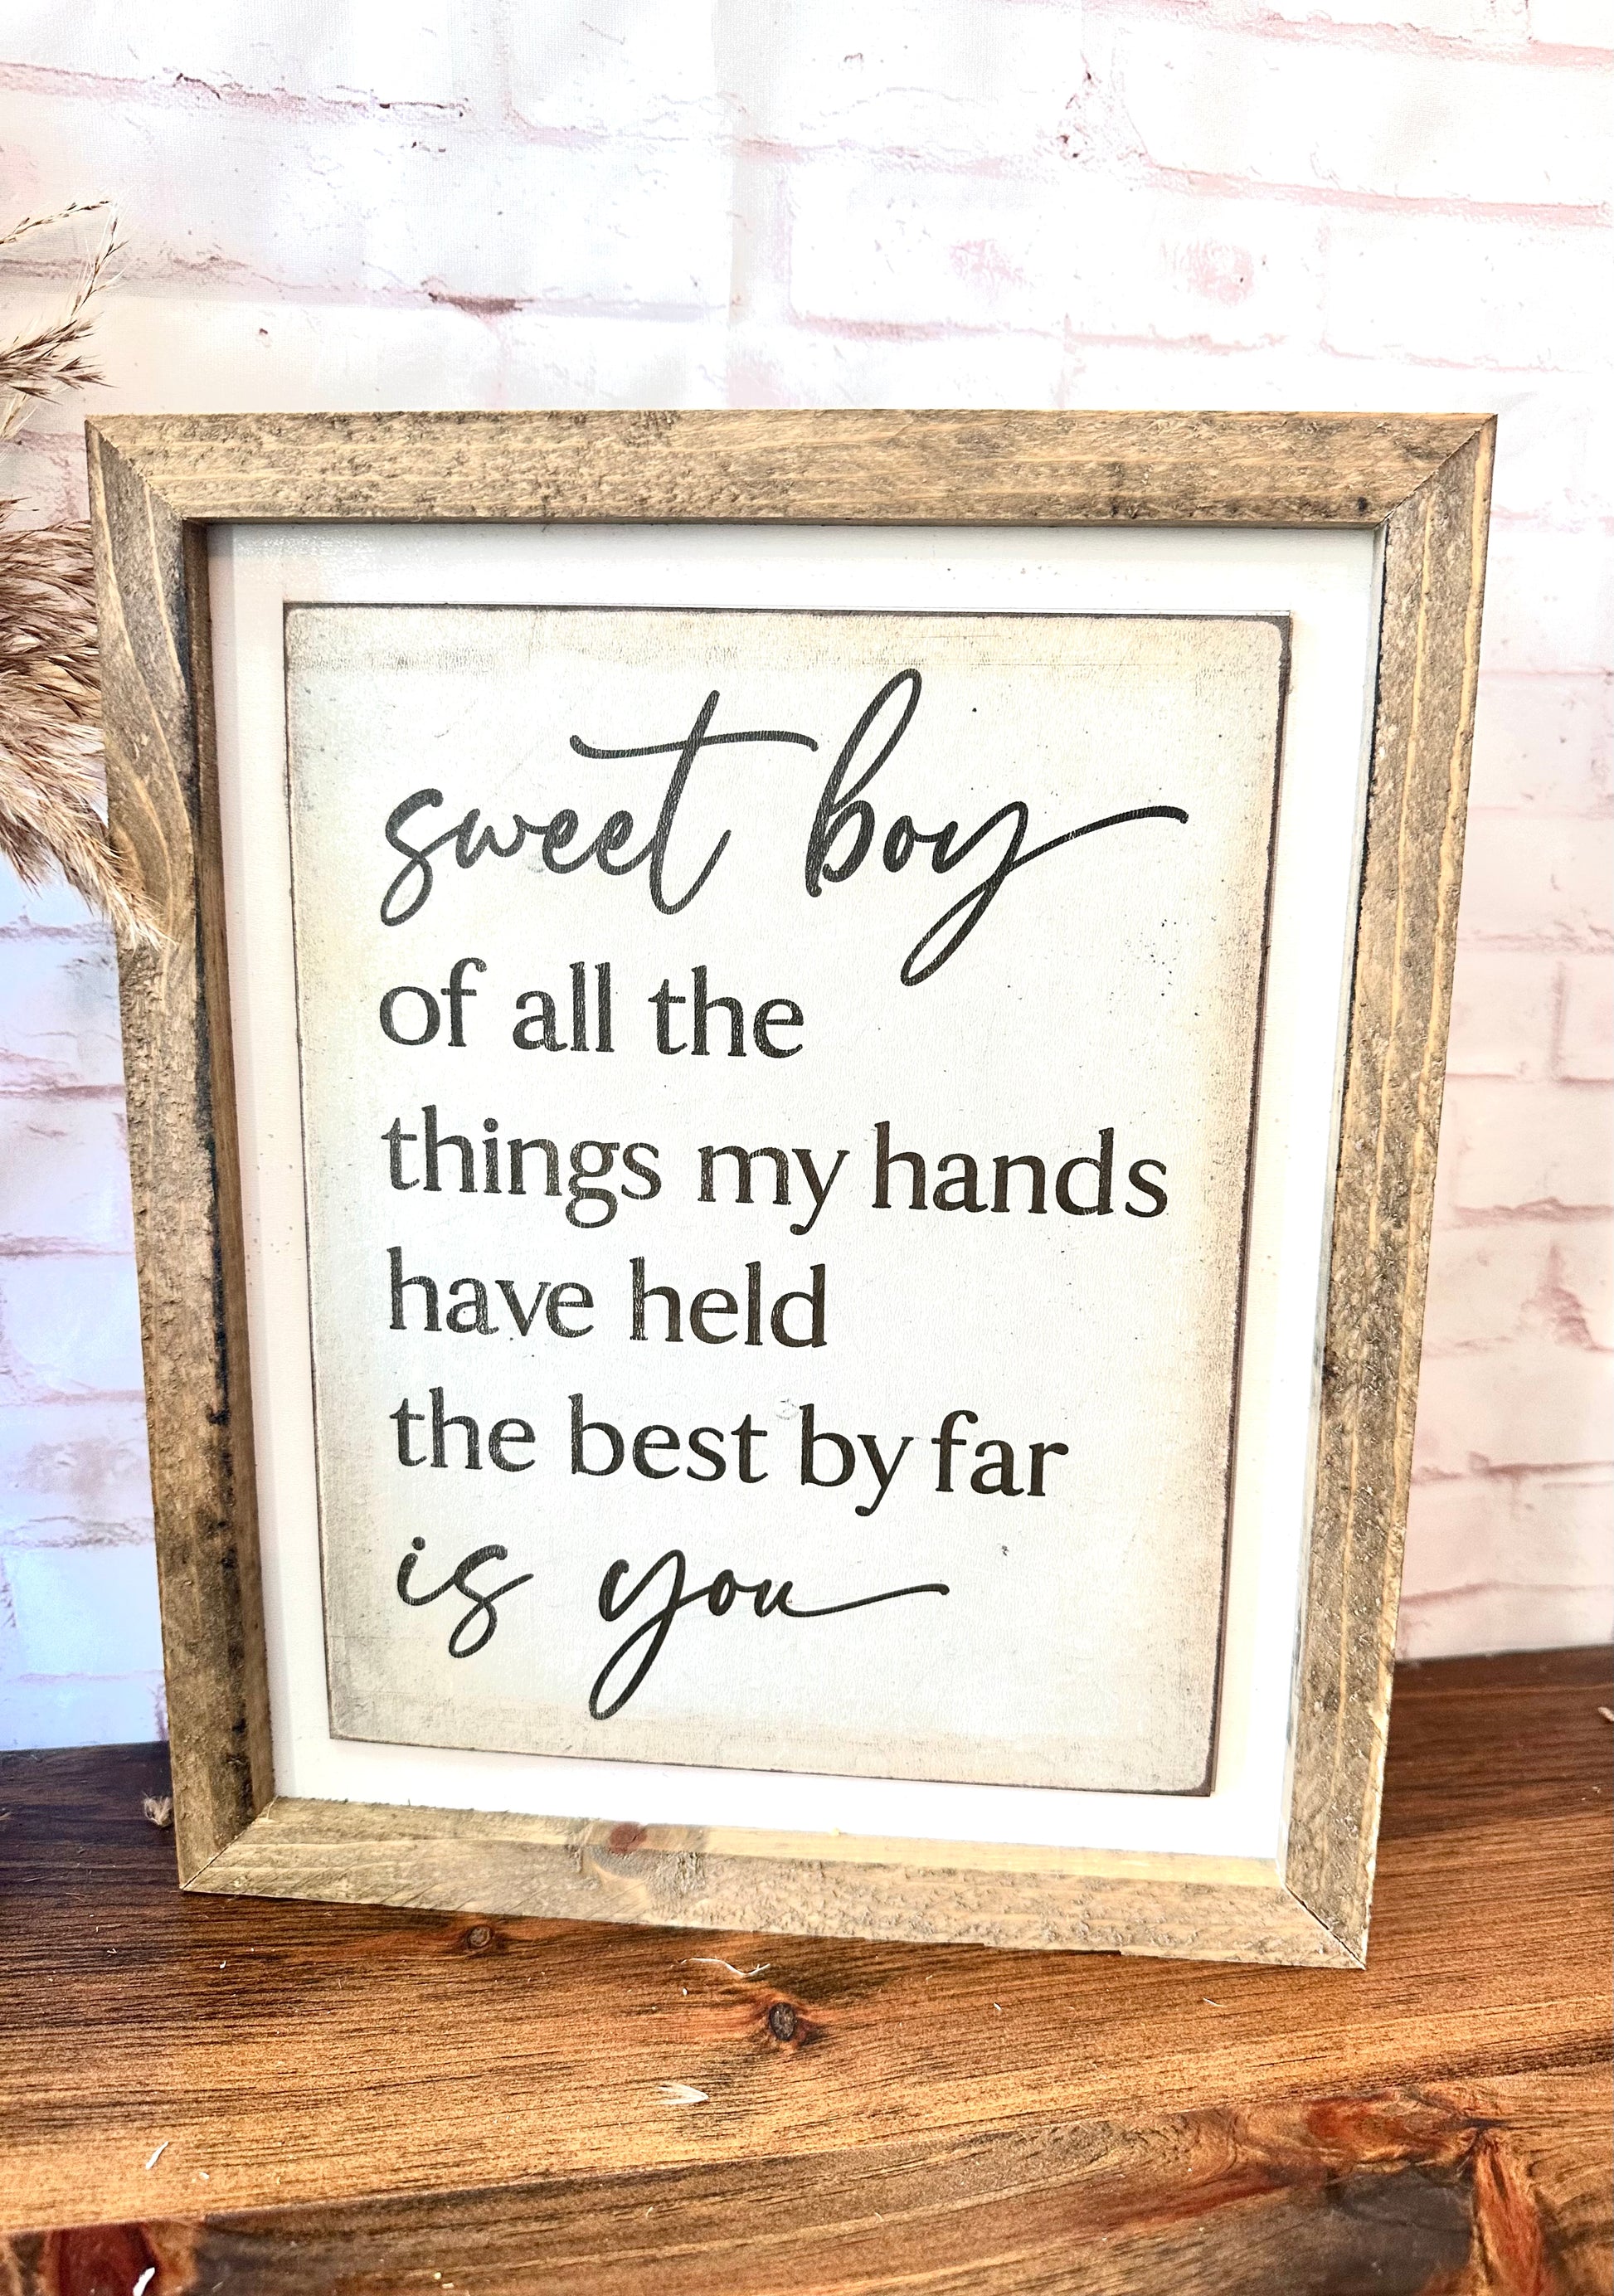 sweet boy
of all the
things my hands
have held
the best by far
is you